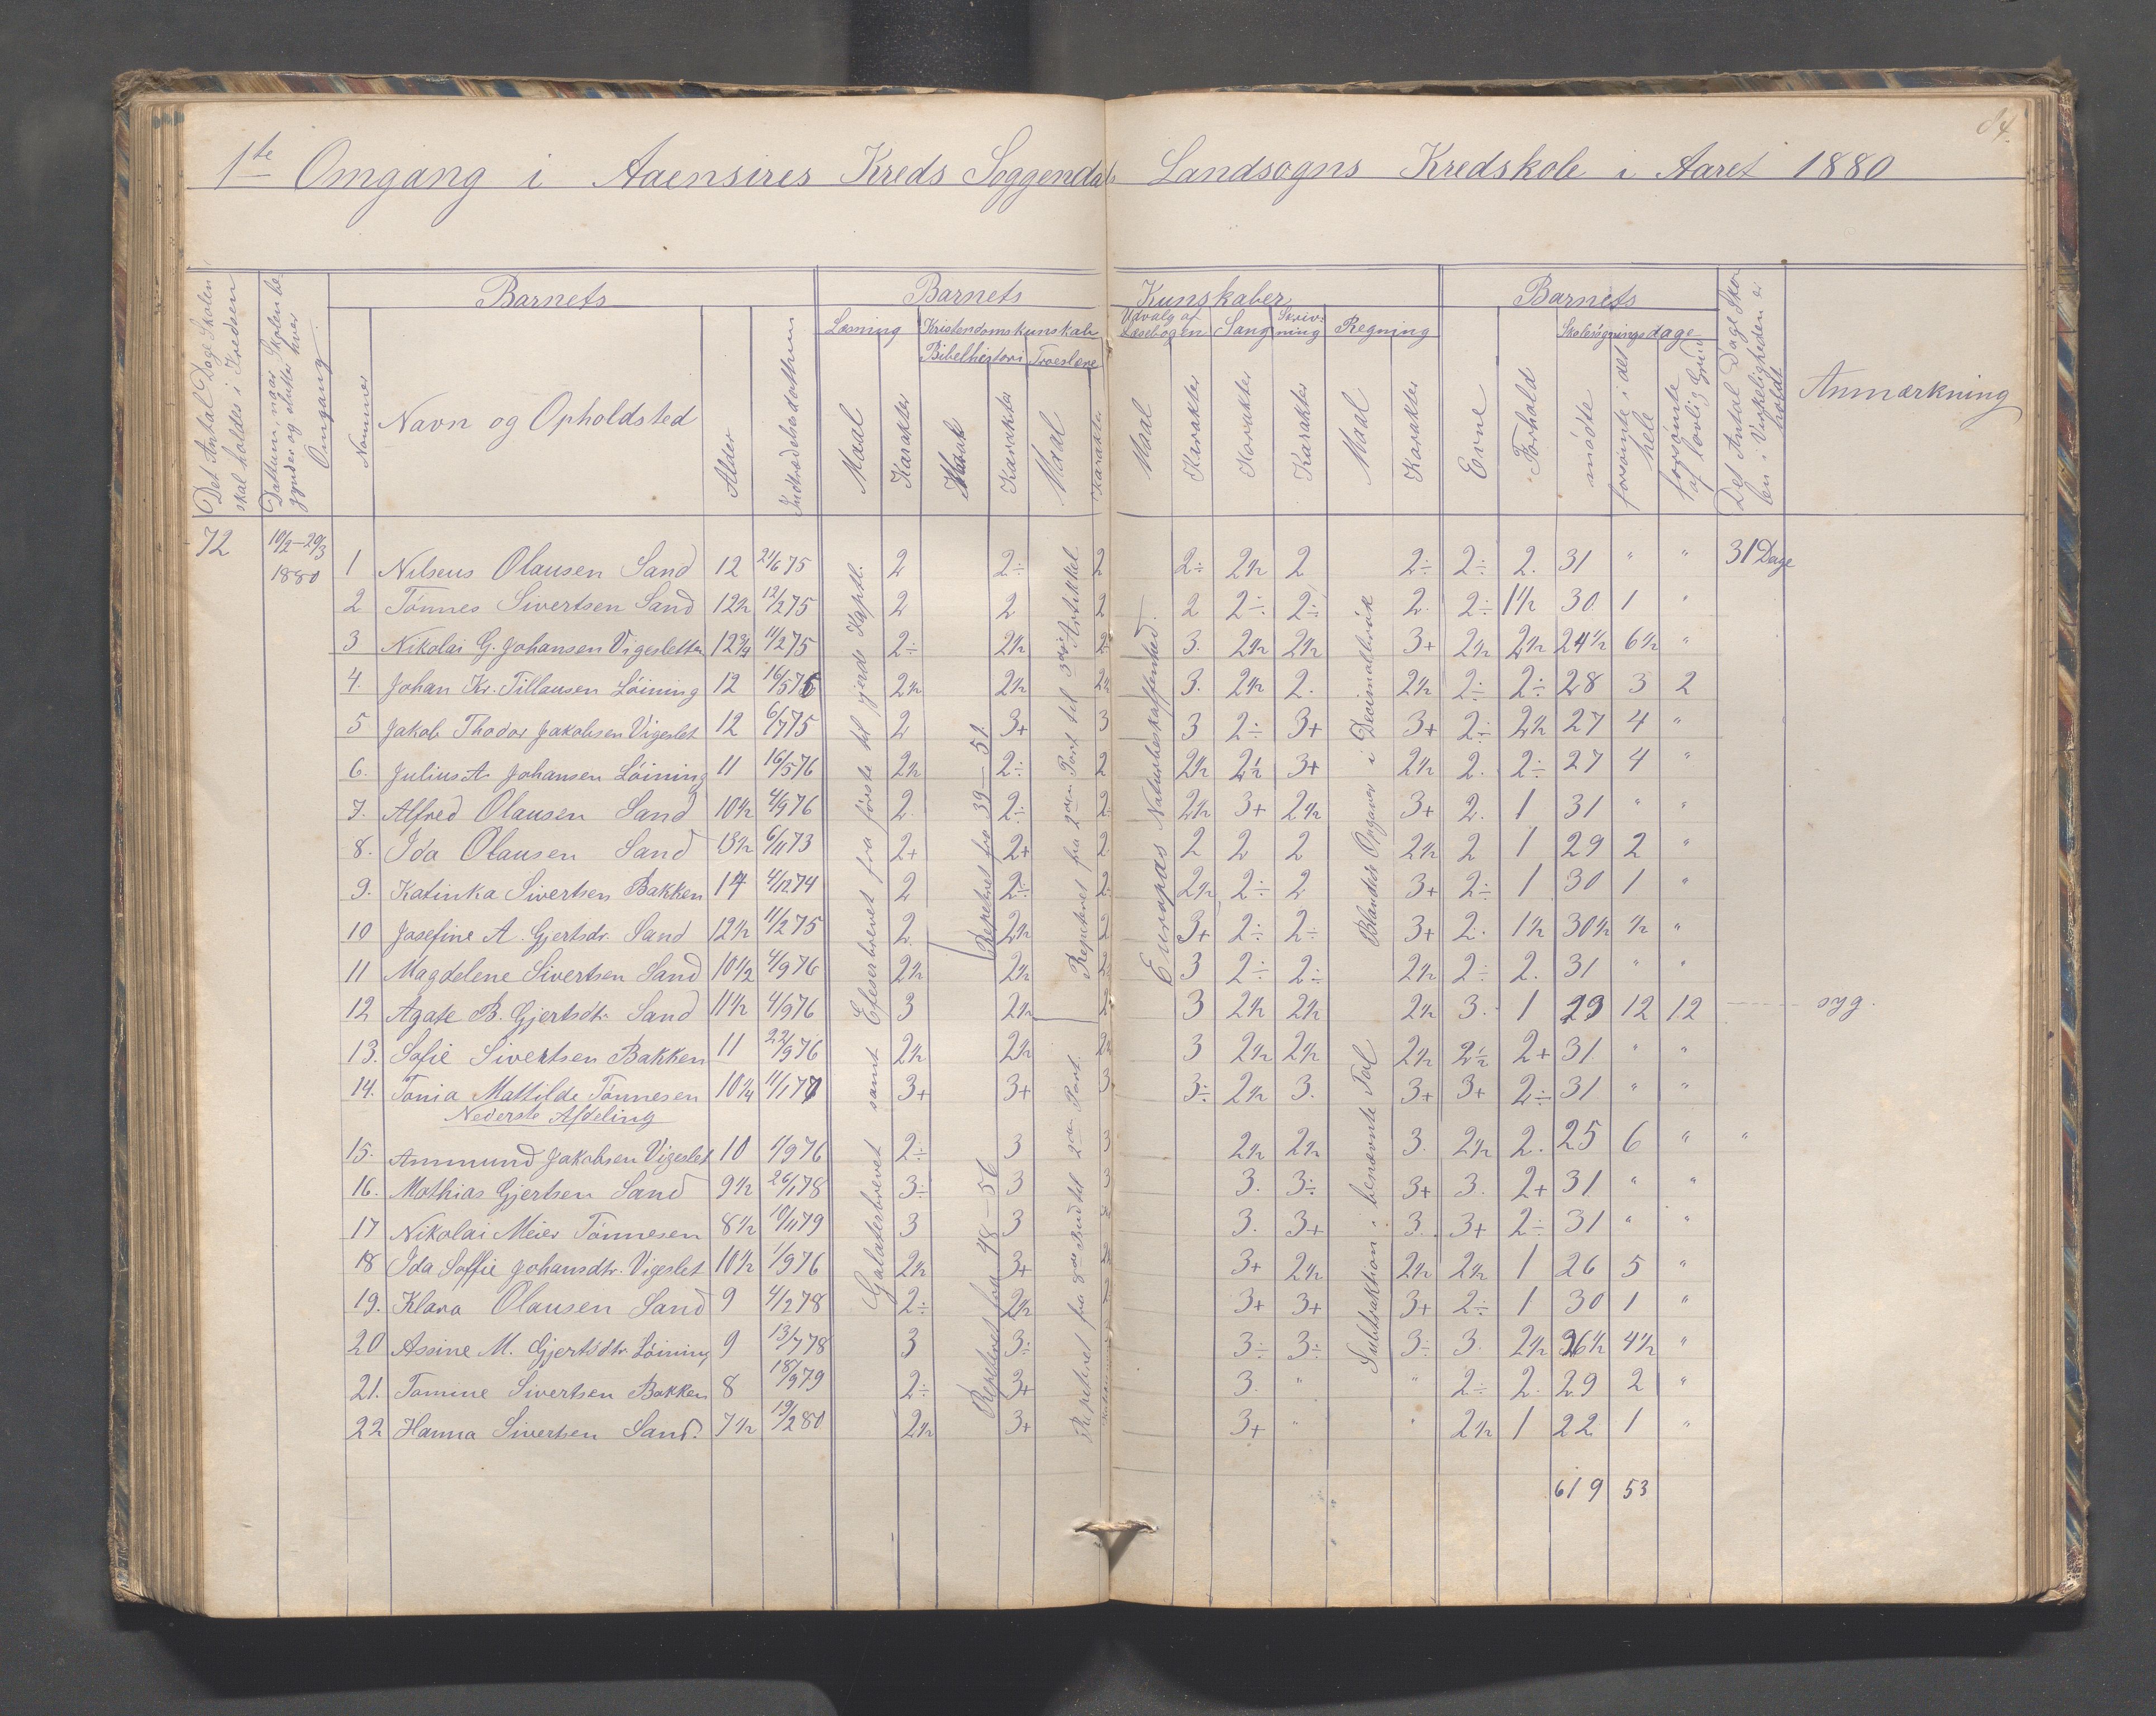 84.
1te Omgang i Aaensires Kreds Soggendals Landsogns Kredskole i Aaret 1880
Det Antal Dage Skolen skal holdes i Kredsen
Datum, naar Skolen begynder og slutter hver Omgang
Barnets
Nummer
Navn og Opholdsted
Alder
Indtrædelsesdathum
Barnets Kunskaber
Læsning
Maal
Karakter
Kristendomskunskab
Bibelhistori
Maal
Karakter
Troeslære
Maal
Karakter
Udvalg af Læsebogen
Maal
Karakter
Sang
Karakter
Skrivning
Karakter
Regning
Maal
Karakter
Barnets
Evne
Forhold
Skolesøgningsdage
mödte
forsömte i det hele
forsömte af lovlig Grund
Det Antal Dage Skolen i Virkeligheden er holdt
Anmærkning
72
10/2–20/3 1880
31 Dage
1 Nilseus Olausen Sand 12 21/6 75 2 2÷ 2 2÷ 2½ 2 2÷ 2÷ 2. 31 " "
2 Tönnes Sivertsen Sand 12½ 12/2 75 2 2 2 2 2÷ 2÷ 2. 2÷ 1½ 30 1 "
3 Nikolai G. Johansen Vigesletten 12¾ 11/2 75 2÷ 2½ 2½ 3. 2½ 2½ 3+ 2½ 2½ 24½ 6½ "
4. Johan Kr. Tillausen Löining 12 16/5 76 2½ 2½ 2½ 3. 2½ 2. 2½ 2÷ 2÷ 28 3 2
5 Jakob Thodor Jakobsen Vigeslet 12 6/7 75 2 3+ 3 3 2÷ 3+ 3+ 2÷ 2½ 27 4 "
6. Julius A. Johansen Löining 11 16/5 76 2½ 2÷ 2 2½ 2½ 3+ 2½ 2. 2÷ 27 4 "
7. Alfred Olausen Sand 10½ 4/9 76 2. 2÷ 2 2½ 3+ 2½ 3+ 2. 1 31 " "
8. Ida Olausen Sand 13½ 6/11 73 2+ 2+ 2 2 2 2 2½ 2 1 29 2 "
9. Katinka Sivertsen Bakken 14 4/12 74 2 2÷ 2 2½ 2÷ 2 3+ 2÷ 1 30 1 "
10 Josefine A. Gjertsdr. Sand 12½ 11/2 75 2. 2½ 2 3+ 2÷ 2÷ 3+ 2. 1½ 30½ ½ "
11 Magdelene Sivertsen Sand 10½ 4/9 76 2½ 2½ 2 3 2÷ 2÷ 2½ 2÷ 2. 31 " "
12 Agate B. Gjertsdtr. Sand 11½ 4/9 76 3 2½ 2 3 2½ 2½ 2½ 3. 1 19 12 12 syg.
13. Sofie Sivertsen Bakken 11 22/9 76 2½ 2½ 2½ 3 2½ 2½ 2½ 2½ 2+ 31 " "
14. Tonia Mattilde Tönnesen 10¼ 11/1 77 3+ 3+ 3 3÷ 2½ 3. 3+ 3+ 2÷ 31 " "
Nederste Afdeling
15. Ammund Jakobsen Vigeslet 10 4/9 76 2÷ 3 3 2½ 2½ 3. 2½ 2. 25 6 " "
16. Mathias Gjertsen Sand 9½ 26/1 78 3÷ 3 3 3. 3÷ 3+ 3. 2+ 31 " "
17 Nikolai Meier Tönnesen 8½ 10/11 79 3 3 3. 3+ 3. 3+ 2÷ 31 " "
18 Ida Soffie Johansdtr. Vigeslet 10½ 1/9 76 2½ 3+ 3+ 2½ 2½ 2½ 1 26 5 "
19. Klara Olausen Sand 9 4/2 78 2÷ 2½ 3+ 3+ 3+ 2÷ 1 30 1 "
20 Assine M. Gjertsdtr Löining 9 13/7 78 3 3÷ 3÷ 3÷ 3÷ 3. 2½ 26½ 4½ "
21. Tomine Sivertsen Bakken 8 18/9 79 2÷ 3+ 3. " " 2÷ 2. 29 2 "
22 Hanna Sivertsen Sand. 7½ 19/2 80 2½ 3+ 3+ " " 2½ 1 22 1 "
619 53
Efeserbrevet fra förste til fjerde Kaptl.
samt Galaterbrevet
Repetert fra 39–51
Repetert fra 48–56
Repetert fra 2den Part til 3die Artikkel
Repetert fra 8de Bud til 2den Part.
Europas Naturbeskaffenhed.
Blandede Opgaver i Decimalbrök
Subtraktion i benævnte Tal